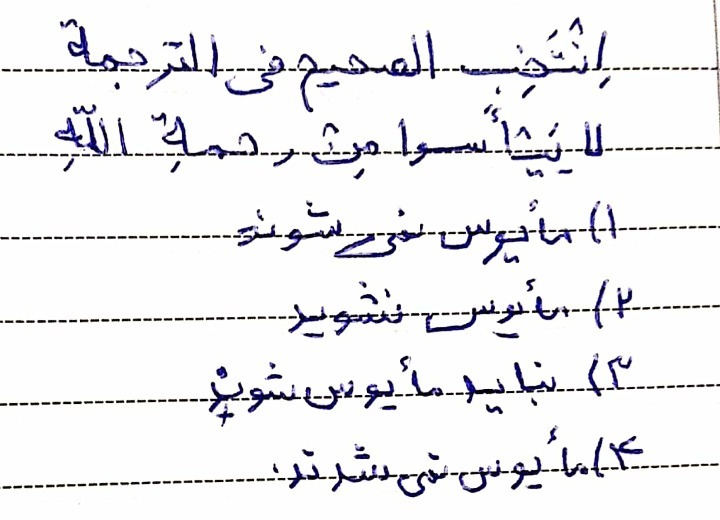 اِنْتَخِب الصحیح فی الترجمة
لا یَیْأَسوا مِن رحمةِ اللّٰهِ
۱) مأیوس نمی‌شوند
۲) مأیوس نشوید
۳) نباید مأیوس شوند
۴) مأیوس نمی‌شدند